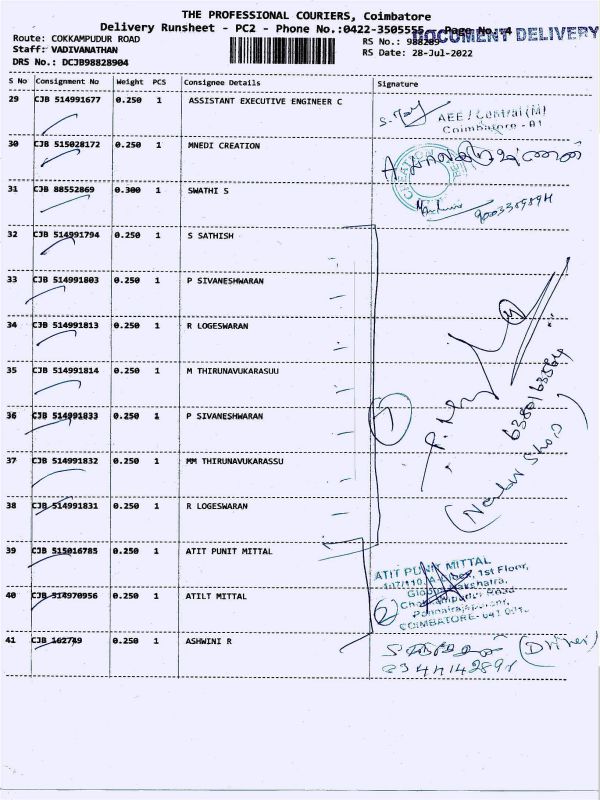 THE PROFESSIONAL COURIERS, Coimbatore
Delivery Runsheet - PC2 - Phone No.:0422-3505555 Page No. 4
DOCUMENT DELIVERY
Route: COKKAMPUDUR ROAD
RS No.: 988289
Staff: VADIVANATHAN
RS Date: 28-Jul-2022
DRS No.: DCJB98828904
S No Consignment No Weight PCS Consignee Details Signature
29 CJB 514991677 0.250 1 ASSISTANT EXECUTIVE ENGINEER C
AEE / Central (M)
Coimbatore - 01
30 CJB 515028172 0.250 1 MNEDI CREATION
CREATION
31 CJB 88552869 0.300 1 SWATHI S
32 CJB 514991794 0.250 1 S SATHISH
33 CJB 514991803 0.250 1 P SIVANESHWARAN
34 CJB 514991813 0.250 1 R LOGESWARAN
35 CJB 514991814 0.250 1 M THIRUNAVUKARASUU
6380163564
36 CJB 514991833 0.250 1 P SIVANESHWARAN
7
37 CJB 514991832 0.250 1 MM THIRUNAVUKARASSU
38 CJB 514991831 0.250 1 R LOGESWARAN
39 CJB 515016785 0.250 1 ATIT PUNIT MITTAL
ATIT PUNIT MITTAL
1st Floor,
40 CJB 514970956 0.250 1 ATILT MITTAL
2
Road
COIMBATORE - 641
41 CJB 162749 0.250 1 ASHWINI R
(Driver)